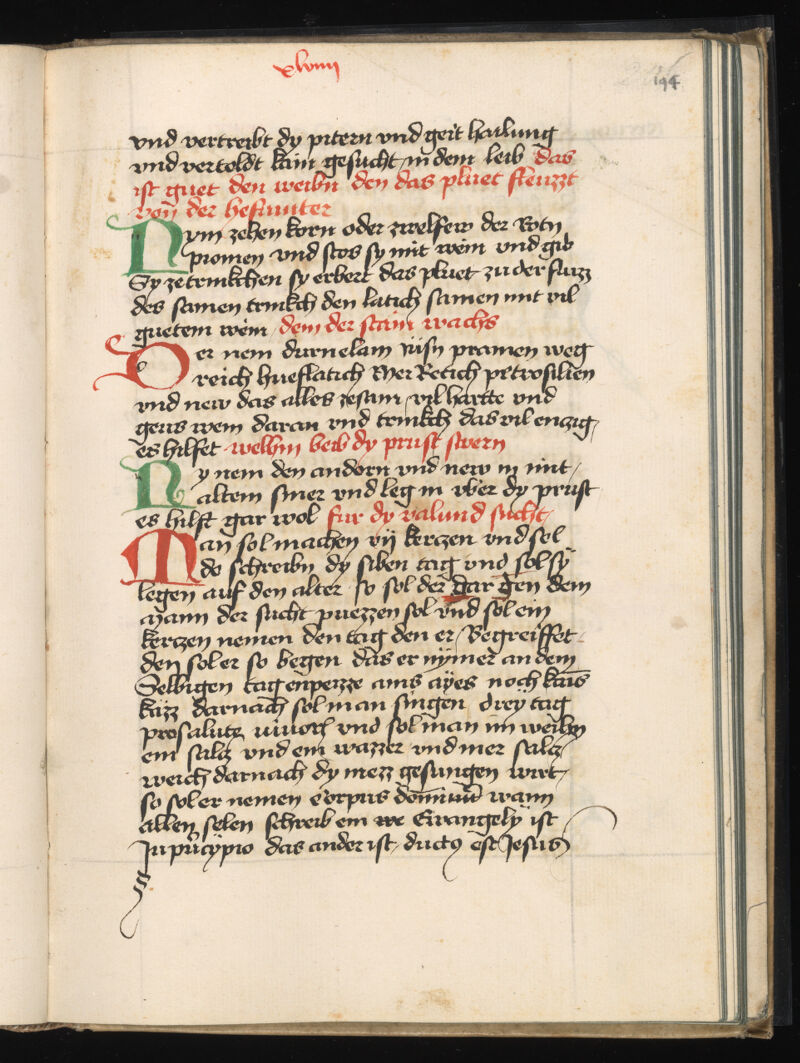 xlviiij
194
vnd vertreibt dy pitern vnd geit hailung
vnd vertoldt kain gesucht in dem leib das
ist guet den weibn den das pluet fleuzzt
von der hefmuter
Nym zehen korn oder zwelfew der Rotn
piomen vnd stos sy mit wein vnd gib
Sy ze trinkchen sy erbert das pluet zu der fluzz
des samen trinkch den latich samen mit vil
guetem wein dem der stain wachs
Der nem durnelam pramen weg
reich hueflatich Mer Retich petrosilien
vnd new das alles zesam vil hartte vnd
geus wein daran vnd trinkch das vil enzig
es hilfet welhm beib dy prust swern
Dy nem den andorn vnd new in mit
altem smer vnd leg in vber dy prust
es hilft gar wol fur dy valund sucht
Man sol machen vij kerczen vnd sol
do schreibn dy siben tag vnd sol sy
legen auf den alter so sol der dar gen dem
mann der sucht puezzen sol vnd sol ein
kerczen nemen den tag den er Begreiffet
den sol er so begen das er nymer an dem
Selbigen tag enpezze ains ayes noch kains
käzz darnach sol man singen drey tag
pro salute viuorum vnd sol man im weihn
ein salcz vnd ein wazzer vnd mer salcz
weich darnach dy mezz gesungen wirt
so sol er nemen corpus domini wann
allen selen schreib ein we Ewangely ist
In principio das ander ist ductus est Jesus